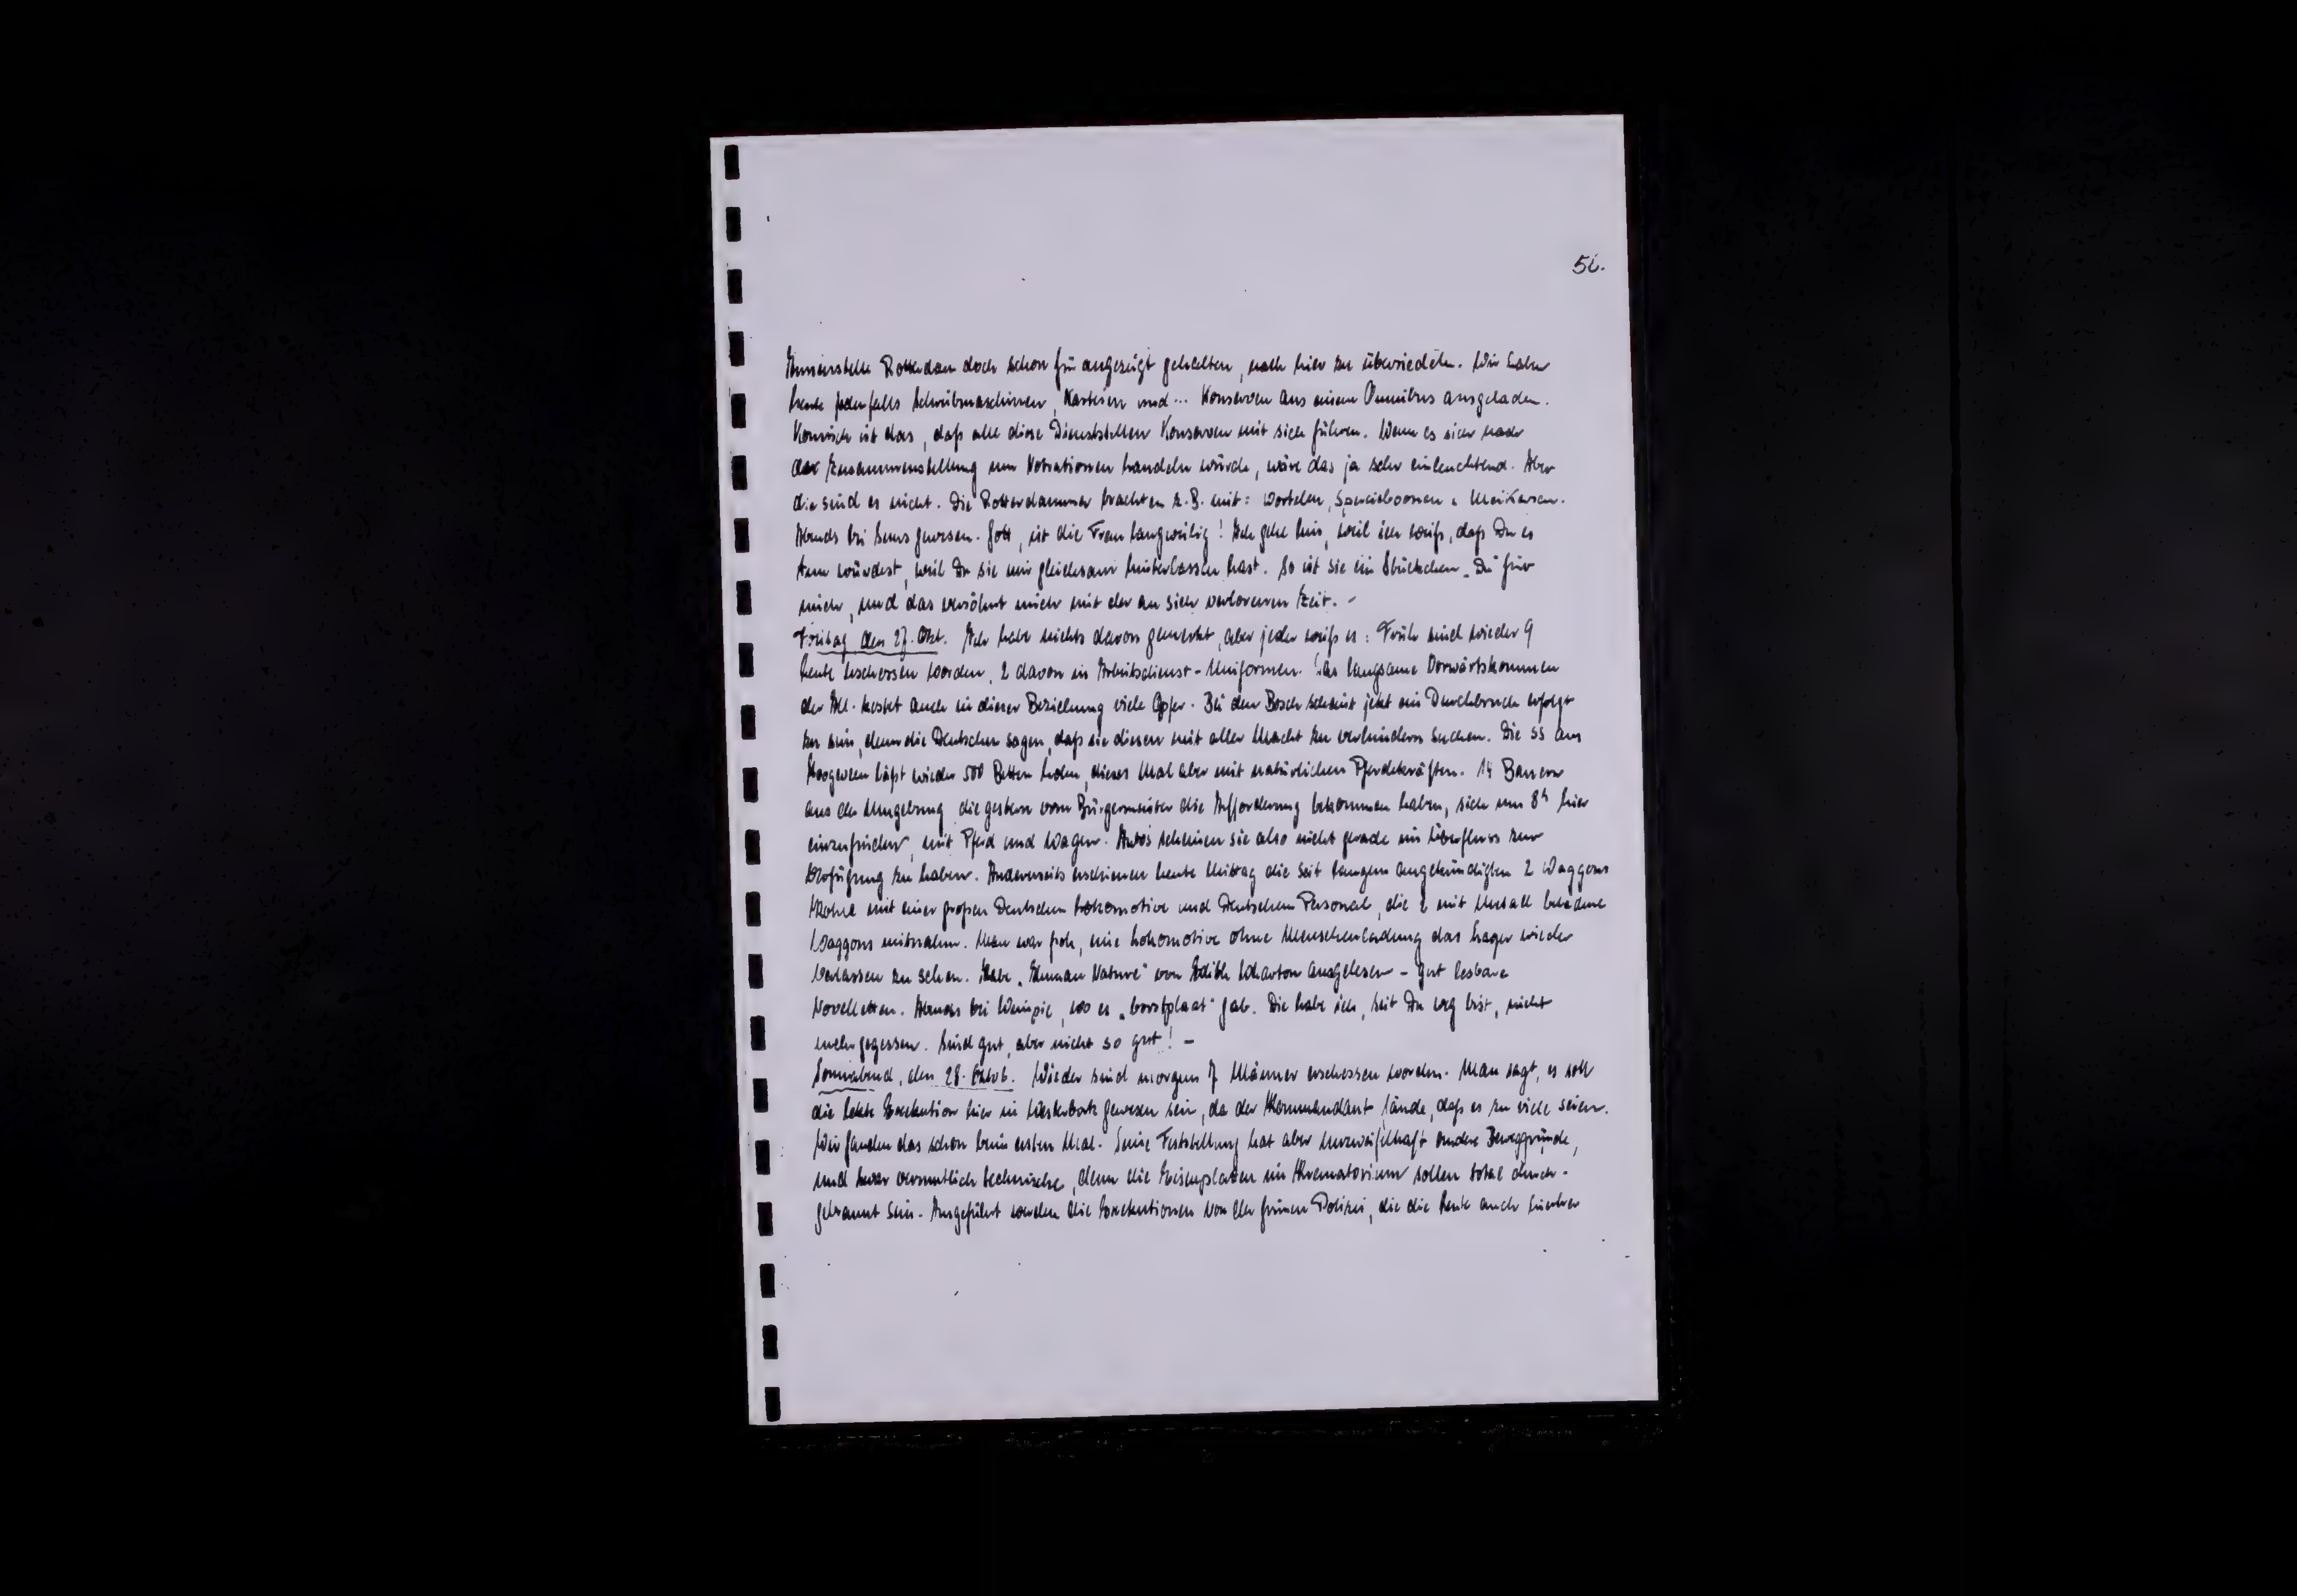 56.
Aussenstelle Rotterdam doch schon für angezeigt gehalten, nach hier zu übersiedeln. Wir haben
heute jedenfalls Schreibmaschinen, Karteien und... Konserven aus einem Omnibus ausgeladen.
Komisch ist das, daß alle diese Dienststellen Konserven mit sich führen. Wenn es sich nach
der Zusammenstellung um Notrationen handeln würde, wäre das ja sehr einleuchtend. Aber
die sind es nicht. Die Rotterdammer brachten z.B. mit: wortelen, sperciebonen u.
Abends bei gewesen. Gott, ist die Frau langweilig! Ich gehe hin, weil ich weiß, daß Du es
tun würdest, weil Du sie mir gleichsam hinterlassen hast. So ist sie ein Stückchen „Du" für
mich, und das versöhnt mich mit der an sich verlorenen Zeit. -
Freitag, den 27. Okt. Ich habe nichts davon gemerkt, aber jeder weiß es: Früh sind wieder 9
Leute erschossen worden, 2 davon in Arbeitsdienst-Uniformen. Das langsame Vorwärtskommen
der All. kostet auch in dieser Beziehung viele Opfer. Bei den Bosch scheint jetzt ein Durchbruch erfolgt
zu sein, denn die Deutschen sagen, daß sie diesen mit aller Macht zu verhindern suchen. Die SS aus
Hoogeveen läßt wieder 500 Betten holen, dieses Mal aber mit natürlichen Pferdekräften. 14 Bauern
aus der Umgebung die gestern vom Bürgermeister die Aufforderung bekommen haben, sich um 8h hier
einzufinden, mit Pferd und Wagen. Autos scheinen sie also nicht gerade im Überfluss zur
Verfügung zu haben. Andererseits erschienen heute Mittag die seit langem angekündigten 2 Waggons
Kohle mit einer großen Deutschen Lokomotive und Deutschem Personal, die 2 mit Metall beladene
Waggons mitnahm. Man war froh, eine Lokomotive ohne Menschenladung das Lager wieder
verlassen zu sehen. Habe „Human Nature" von Edith Wharton ausgelesen - gut lesbare
Novelletten. Abends bei, wo es „borstplaat" gab. Die habe ich, seit Du weg bist, nicht
mehr gegessen. Sind gut, aber nicht so gut! -
Sonnabend, den 28. Oktob. Wieder sind morgens 7 Männer erschossen worden. Man sagt, es soll
die letzte Exekution hier in Westerbork gewesen sein, da der Kommandant fände, daß es zu viele seien.
Wir fanden das schon beim ersten Mal. Seine Feststellung hat aber unzweifelhaft andere Beweggründe,
und zwar vermutlich technische, denn die Eisenplatten im Krematorium sollen total durch-
gebrannt sein. Ausgeführt werden die Exekutionen von der grünen Polizei, die die Leute auch hierher